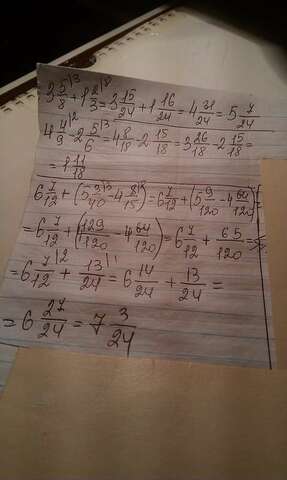 3 5/8 |3 + 1 2/3 |8 = 3 15/24 + 1 16/24 = 4 31/24 = 5 7/24
4 4/9 |2 - 2 5/6 |3 = 4 8/18 - 2 15/18 = 3 26/18 - 2 15/18 =
= 1 11/18
6 7/12 + (5 3/40 |3 - 4 8/15 |8) = 6 7/12 + (5 9/120 - 4 64/120) =
= 6 7/12 + (4 129/120 - 4 64/120) = 6 7/12 + 65/120 =
= 6 7/12 |2 + 13/24 |1 = 6 14/24 + 13/24 =
= 6 27/24 = 7 3/24